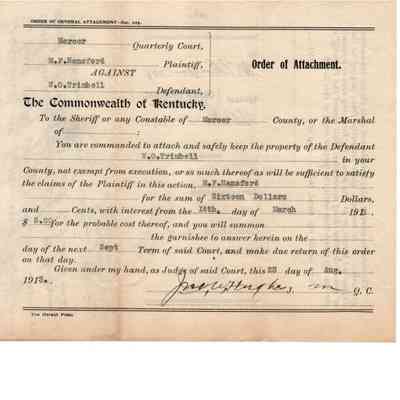 ORDER OF GENERAL ATTACHMENT—Sec.
Mercer Quarterly Court,
M.F.Hansford Plaintiff,
AGAINST
W.O.Trimbell
Defendant,
Order of Attachment.
The Commonwealth of Kentucky,
To the Sheriff or any Constable of Mercer County, or the Marshal
of :
You are commanded to attach and safely keep the property of the Defendant
W.O.Trimbell in your
County, not exempt from execution, or so much thereof as will be sufficient to satisfy
the claims of the Plaintiff in this action, M.F.Hansford
for the sum of Sixteen Dollars Dollars,
and Cents, with interest from the day of March 191
$ for the probable cost thereof, and you will summon
the garnishee to answer herein on the
day of the next Sept Term of said Court, and make due return of this order
on that day.
Given under my hand, as Judge of said Court, this 23 day of Aug.
191
Hughes, Q. C.
The Herald Print.